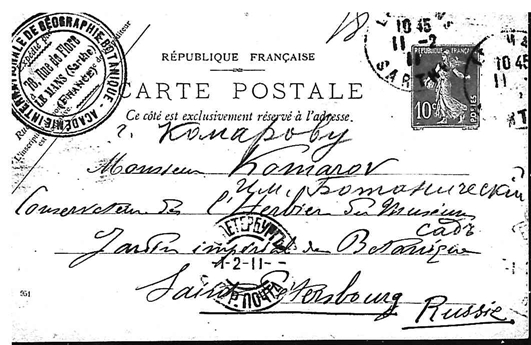 ACADÉMIE INTERNATIONALE DE GÉOGRAPHIE BOTANIQUE
78, Rue de Flore
LE MANS (Sarthe)
(FRANCE)
18
10 45
11-2
11
SARTHE
10 45
11
RÉPUBLIQUE FRANÇAISE
10c
POSTES
RÉPUBLIQUE FRANÇAISE
CARTE POSTALE
Ce côté est exclusivement réservé à l'adresse.
г. Комарову
Monsieur Komarov
Им. Ботанический
Conservateur de l'Herbier du Museum
садъ
Jardin imperial de Botanique
ПЕТЕРБУРГЪ
1-2-11
ПОЧТА
Saint Petersbourg
Russie